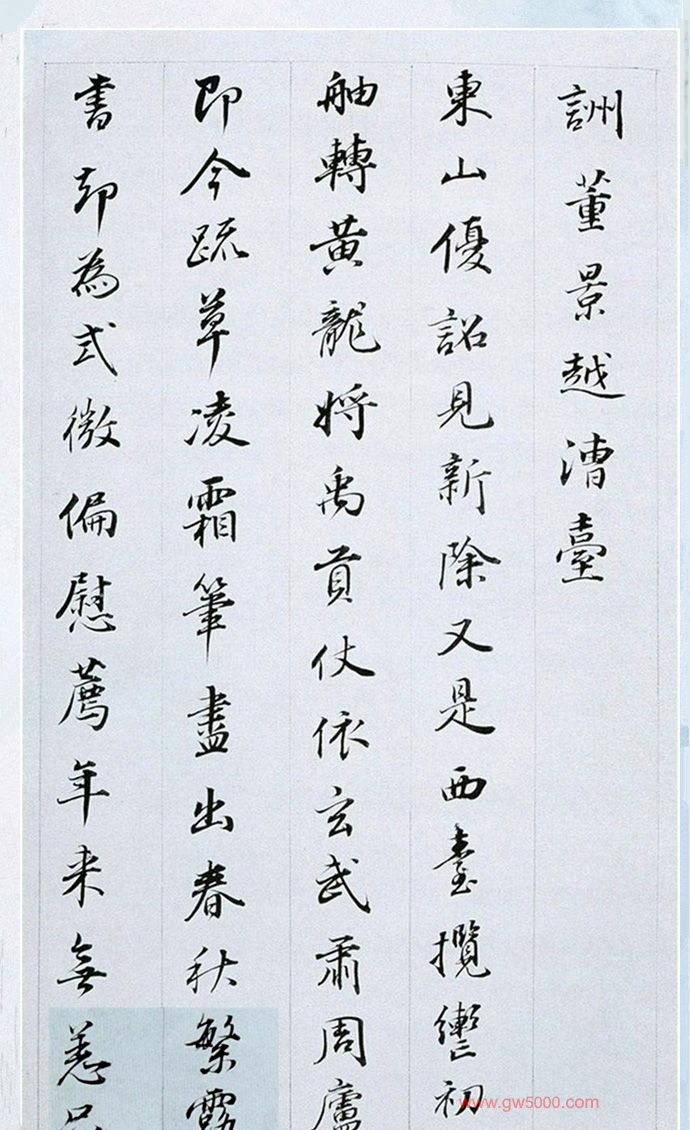 詶董景越漕臺
東山優詔見新除又是西臺攬轡初
舳轉黃龍將禹貢仗依玄武肅周廬
即今疏草凌霜筆盡出春秋繁露
書却為式微偏慰薦年來無恙
www.gw5000.com